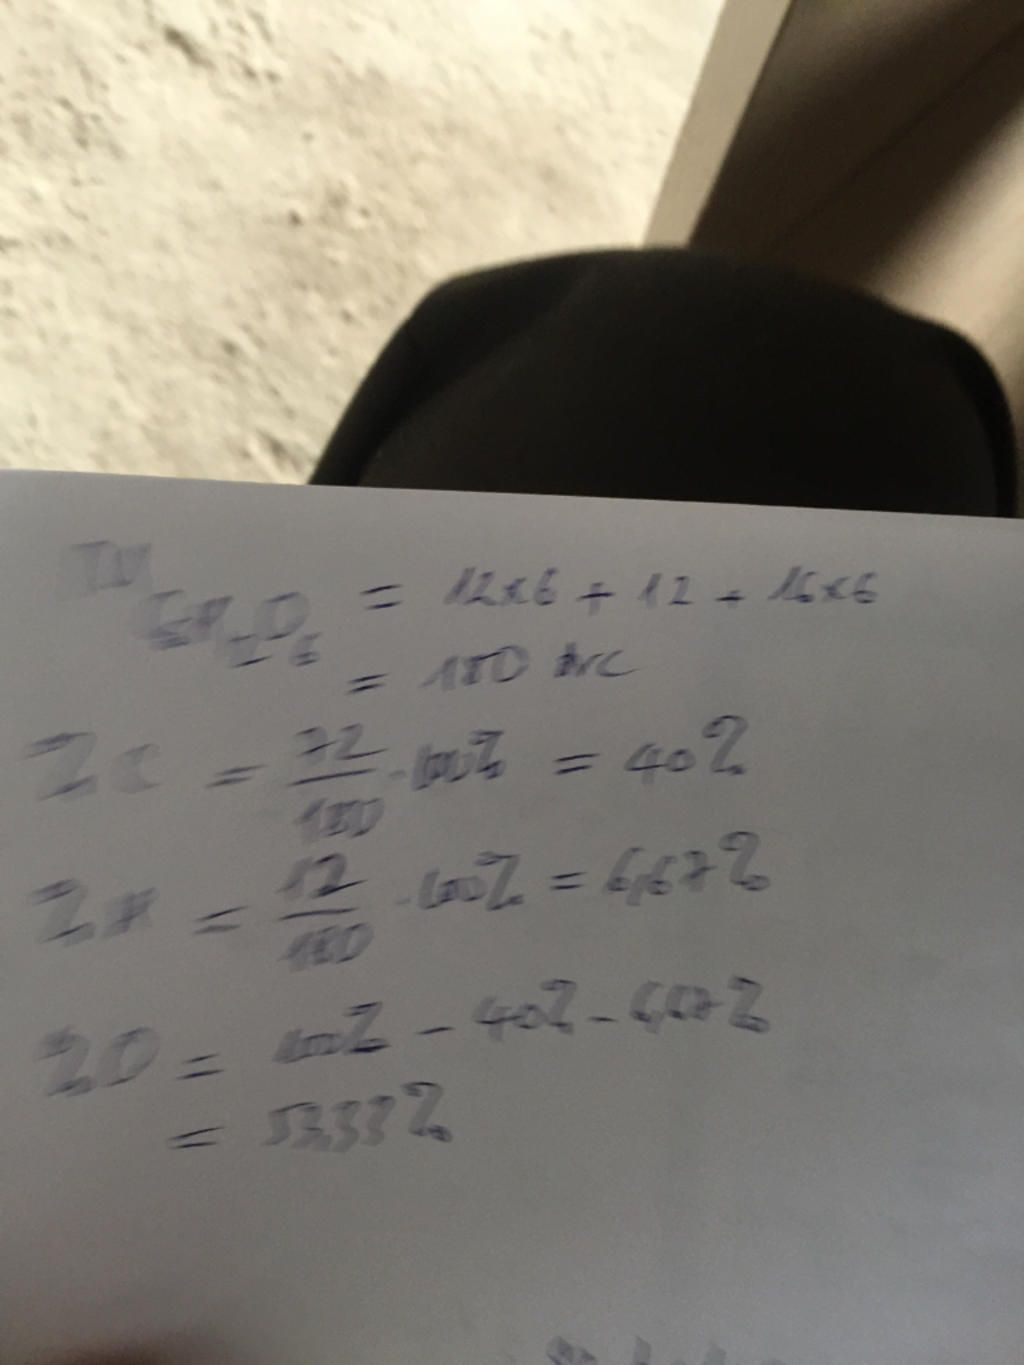 C₆H₁₂O₆ = 12x6 + 12 + 16x6
= 180 đvC
%C = 72/180 . 100% = 40%
%H = 12/180 . 100% = 6,67%
%O = 100% - 40% - 6,67%
= 53,33%